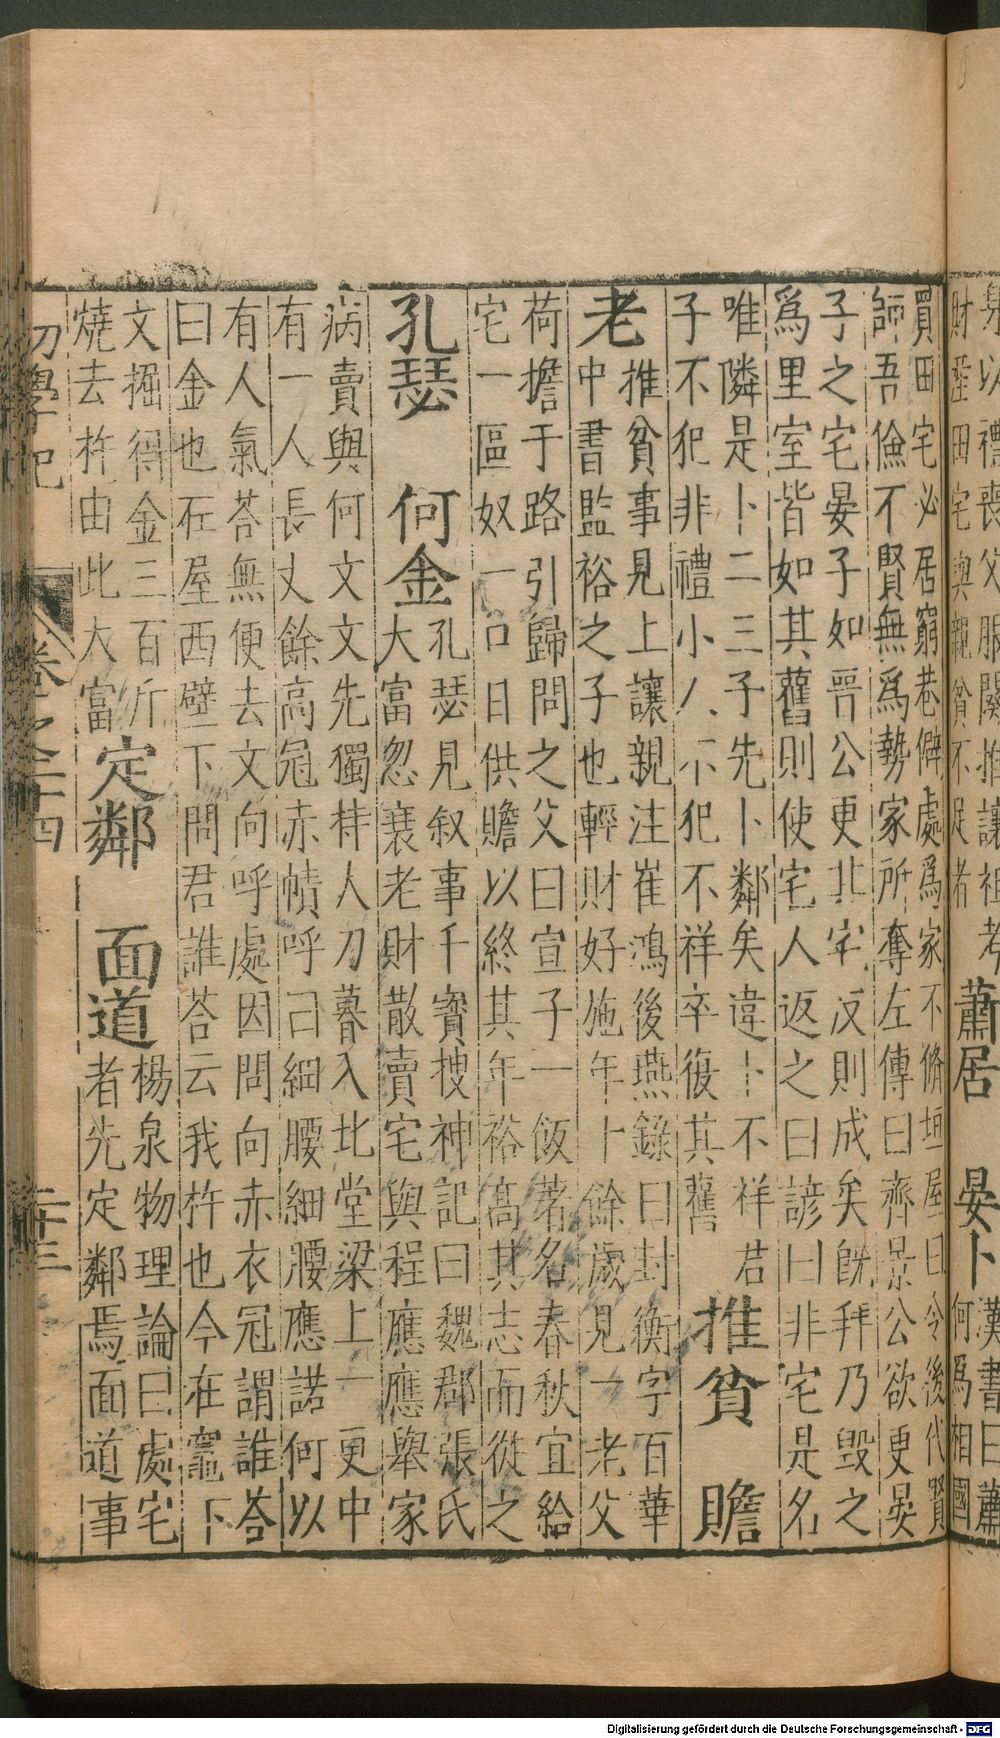 身以禮喪父服闋推讓祖考
財產田宅與親貧不足者
蕭居 晏卜
漢書曰蕭
何爲相國
買田宅必居窮巷僻處爲家不脩垣屋曰令後代賢
師吾儉不賢無爲勢家所奪左傳曰齊景公欲更晏
子之宅晏子如晉公更其宅反則成矣旣拜乃毀之
爲里室皆如其舊則使宅人返之曰諺曰非宅是名
唯隣是卜二三子先卜鄰矣違卜不祥君
子不犯非禮小人不犯不祥卒復其舊
推貧 贍
老
推貧事見上讓親注崔鴻後燕錄曰封衡字百華
中書監裕之子也輕財好施年十餘歲見一老父
荷擔于路引歸問之父曰宣子一飯著名春秋宜給
宅一區奴一口日供贍以終其年裕髙其志而從之
孔瑟 何金
孔瑟見叙事千寳搜神記曰魏郡張氏
大富忽衰老財散賣宅與程應應舉家
病賣與何文文先獨持人刀暮入北堂梁上一更中
有一人長丈餘高冠赤幘呼曰細腰細腰應諾何以
有人氣荅無便去文向呼處因問向赤衣冠謂誰荅
曰金也在屋西壁下問君誰荅云我杵也今在竈下
文掘得金三百斤
燒去杵由此大富
定鄰 面道
楊泉物理論曰處宅
者先定鄰焉面道事
初學記 卷之二十四 二十三
Digitalisierung gefördert durch die Deutsche Forschungsgemeinschaft - DFG